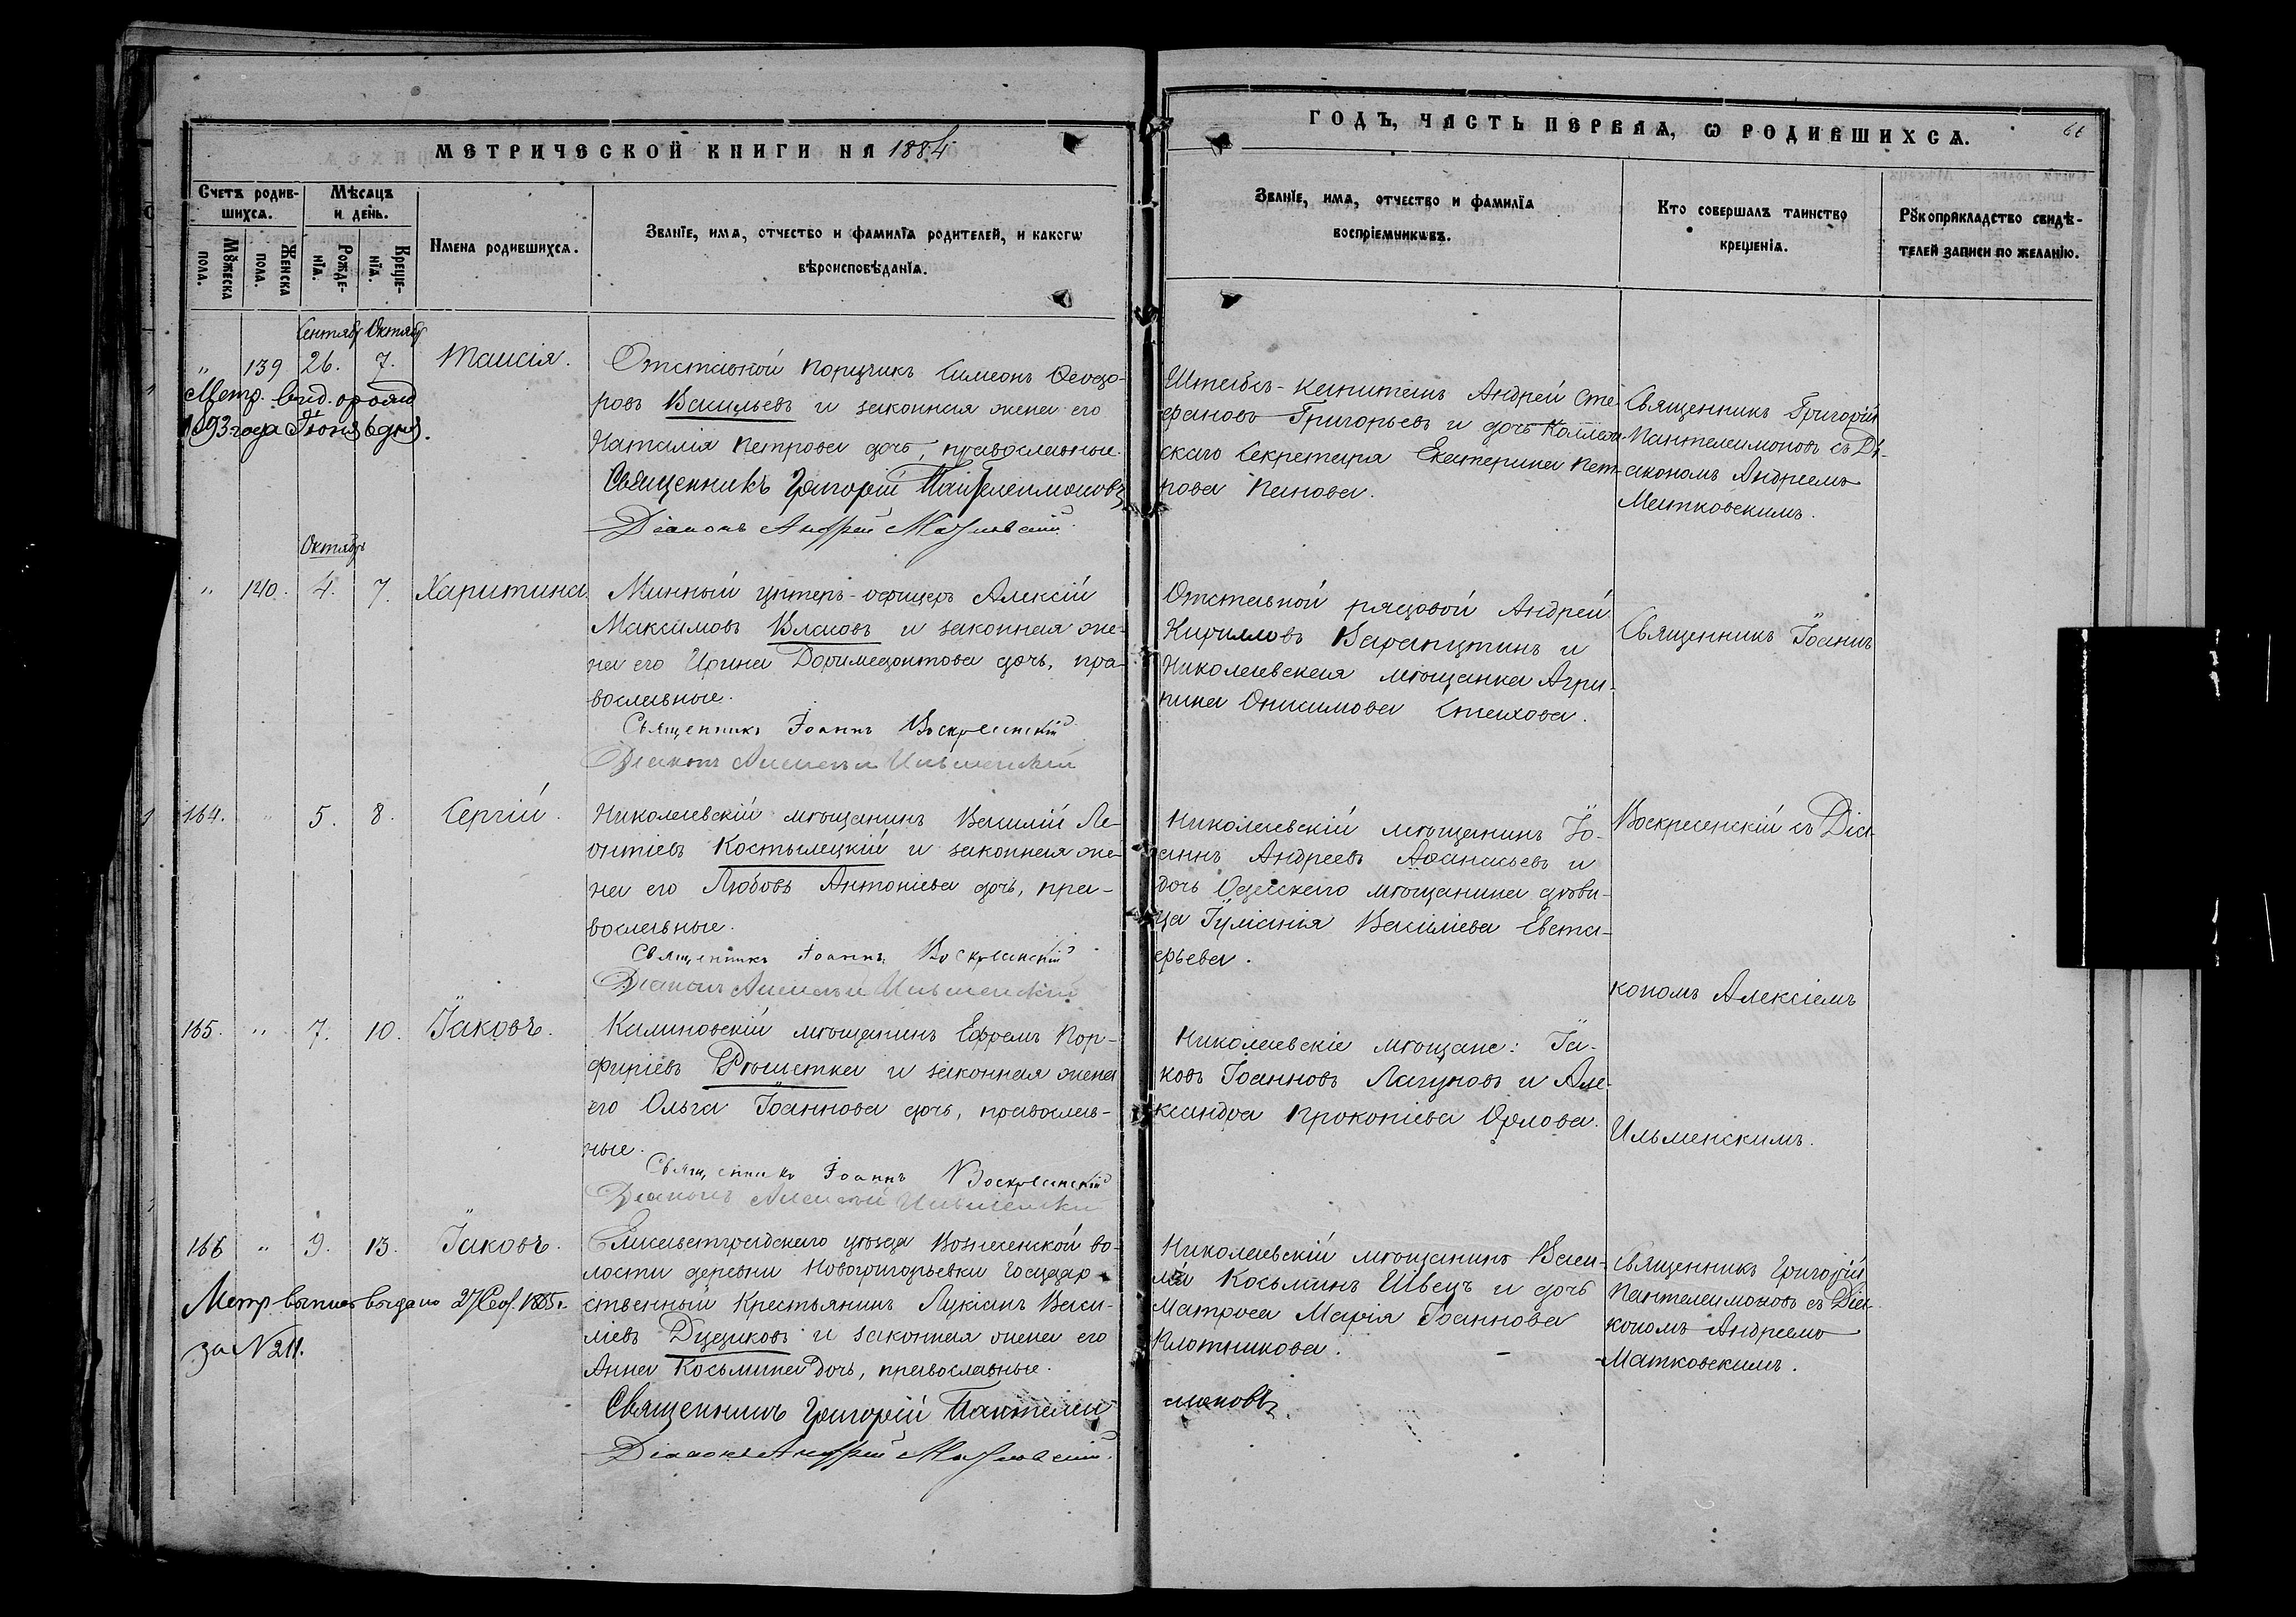 МЕТРИЧЕСКОЙ КНИГИ НА 1884
ГОДЪ, ЧАСТЬ ПЕРВАѦ, Ѡ РОДИВШИХСѦ.
66
Счетъ родив-
шихсѧ.
Мѣсѧцъ
и день.
Имена родившихсѧ.
Званїе, имѧ, отчество и фамилїѧ родителей, и какогѡ
вѣроисповѣданїѧ.
Мꙋжеска
пола.
Женска
пола.
Рожде-
нїѧ.
Креще-
нїѧ.
Званїе, имѧ, отчество и фамилїѧ
воспрїемникѡвъ.
Кто совершалъ таинство
крещенїѧ.
Рꙋкоприкладство свидѣ-
телей записи по желанїю.
Сентябр Октябр
" 139 26. 7. Таисія.
Отставной Поручикъ Симеонъ Ѳеодо-
ровъ Васильевъ и законная жена его
Наталія Петрова дочь, православные.
Священникъ Григорій Пантелеимоновъ
Діаконъ Андрей Матковскій.
Метр. свид.
1893 года Іюня 6 дня.
Штабсъ-Капитанъ Андрей Сте-
фановъ Григорьевъ и дочь Коллеж-
скаго Секретаря Екатерина Пет-
рова Панова.
Священникъ Григорій
Пантелеимоновъ съ Ді-
акономъ Андреемъ
Матковскимъ.
Октябрь
" 140. 4. 7. Харитина
Минный унтеръ-офицеръ Алексій
Максимовъ Власовъ и законная же-
на его Ирина Доримедонтова дочь, пра-
вославные.
Священникъ Іоаннъ Воскресенскій
Діаконъ Алексій Ильменскій
Отставной рядовой Андрей
Кирилловъ Варапутинъ и
Николаевская мѣщанка Агри-
пина Онисимова Стахова.
Священникъ Іоаннъ
164. " 5. 8. Сергій.
Николаевскій мѣщанинъ Василій Ле-
онтіевъ Костылецкій и законная же-
на его Любовь Антоніева дочь, пра-
вославные.
Священникъ Іоаннъ Воскресенскій
Діаконъ Алексій Ильменскій
Николаевскій мѣщанинъ Іо-
аннъ Андреевъ Аѳанасьевъ и
дочь Одесскаго мѣщанина дѣви-
ца Іуліанія Василіева Евста-
фьева.
Воскресенскій съ Діа-
кономъ Алексіемъ
165. " 7. 10. Іаковъ.
Калиновскій мѣщанинъ Ефремъ Пор-
фиріевъ Рѣшетка и законная жена
его Ольга Іоаннова дочь, православ-
ные.
Священникъ Іоаннъ Воскресенскій
Діаконъ Алексій Ильменскій
Николаевскіе мѣщане: Іа-
ковъ Іоанновъ Лагуновъ и Але-
ксандра Прокопіева Орлова.
Ильменскимъ.
166 " 9. 13. Іаковъ.
Елисаветградскаго уѣзда Вознесенской во-
лости деревни Новогригорьевки Государ-
ственный Крестьянинъ Лукіанъ Васи-
ліевъ Дудиковъ и законная жена его
Анна Косьмина дочь, православные.
Священникъ Григорій Пантелеи-
моновъ
Діаконъ Андрей Матковскій.
Метр. выпись выдана 27 1885 г.
за № 211.
Николаевскій мѣщанинъ Васи-
лій Косьминъ Швецъ и дочь
Матроса Марія Іоаннова
Плотникова.
Священникъ Григорій
Пантелеимоновъ съ Діа-
кономъ Андреемъ
Матковскимъ.